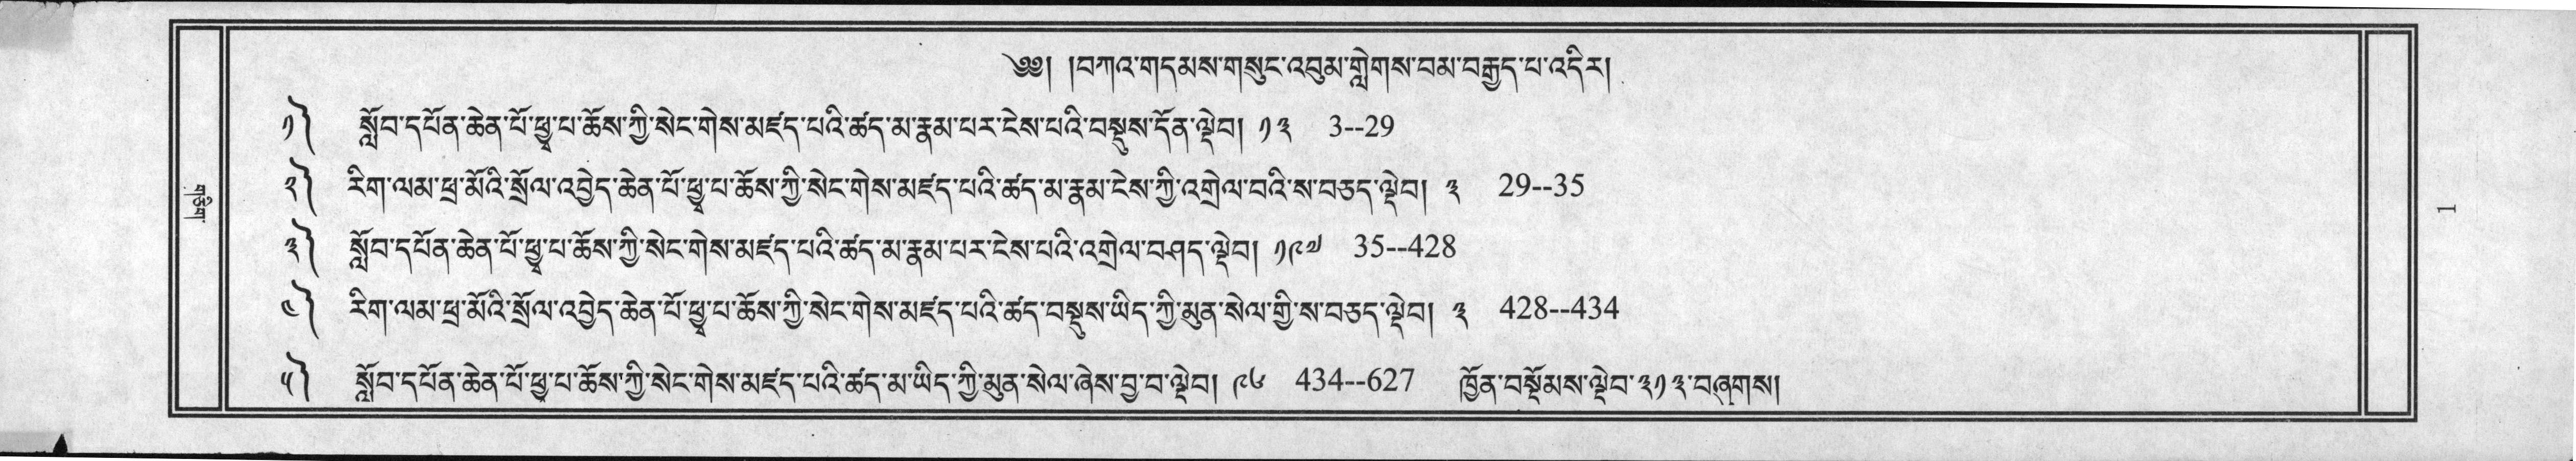 ༄༅། །བཀའ་གདམས་གསུང་འབུམ་གླེགས་བམ་བརྒྱད་པ་འདིར།
༡༽ སློབ་དཔོན་ཆེན་པོ་ཕྱྭ་པ་ཆོས་ཀྱི་སེང་གེས་མཛད་པའི་ཚད་མ་རྣམ་པར་ངེས་པའི་བསྡུས་དོན་ལྡེབ། ༡༣ 3--29
༢༽ རིག་ལམ་ཕྲ་མོའི་སྲོལ་འབྱེད་ཆེན་པོ་ཕྱྭ་པ་ཆོས་ཀྱི་སེང་གེས་མཛད་པའི་ཚད་མ་རྣམ་ངེས་ཀྱི་འགྲེལ་བའི་ས་བཅད་ལྡེབ། ༣ 29--35
༣༽ སློབ་དཔོན་ཆེན་པོ་ཕྱྭ་པ་ཆོས་ཀྱི་སེང་གེས་མཛད་པའི་ཚད་མ་རྣམ་པར་ངེས་པའི་འགྲེལ་བཤད་ལྡེབ། ༡༩༧ 35--428
༤༽ རིག་ལམ་ཕྲ་མོའི་སྲོལ་འབྱེད་ཆེན་པོ་ཕྱྭ་པ་ཆོས་ཀྱི་སེང་གེས་མཛད་པའི་ཚད་བསྡུས་ཡིད་ཀྱི་མུན་སེལ་གྱི་ས་བཅད་ལྡེབ། ༣ 428--434
༥༽ སློབ་དཔོན་ཆེན་པོ་ཕྱྭ་པ་ཆོས་ཀྱི་སེང་གེས་མཛད་པའི་ཚད་མ་ཡིད་ཀྱི་མུན་སེལ་ཞེས་བྱ་བ་ལྡེབ། ༩༦ 434--627 ཁྱོན་བསྡོམས་ལྡེབ་༣༡༣་བཞུགས།
1